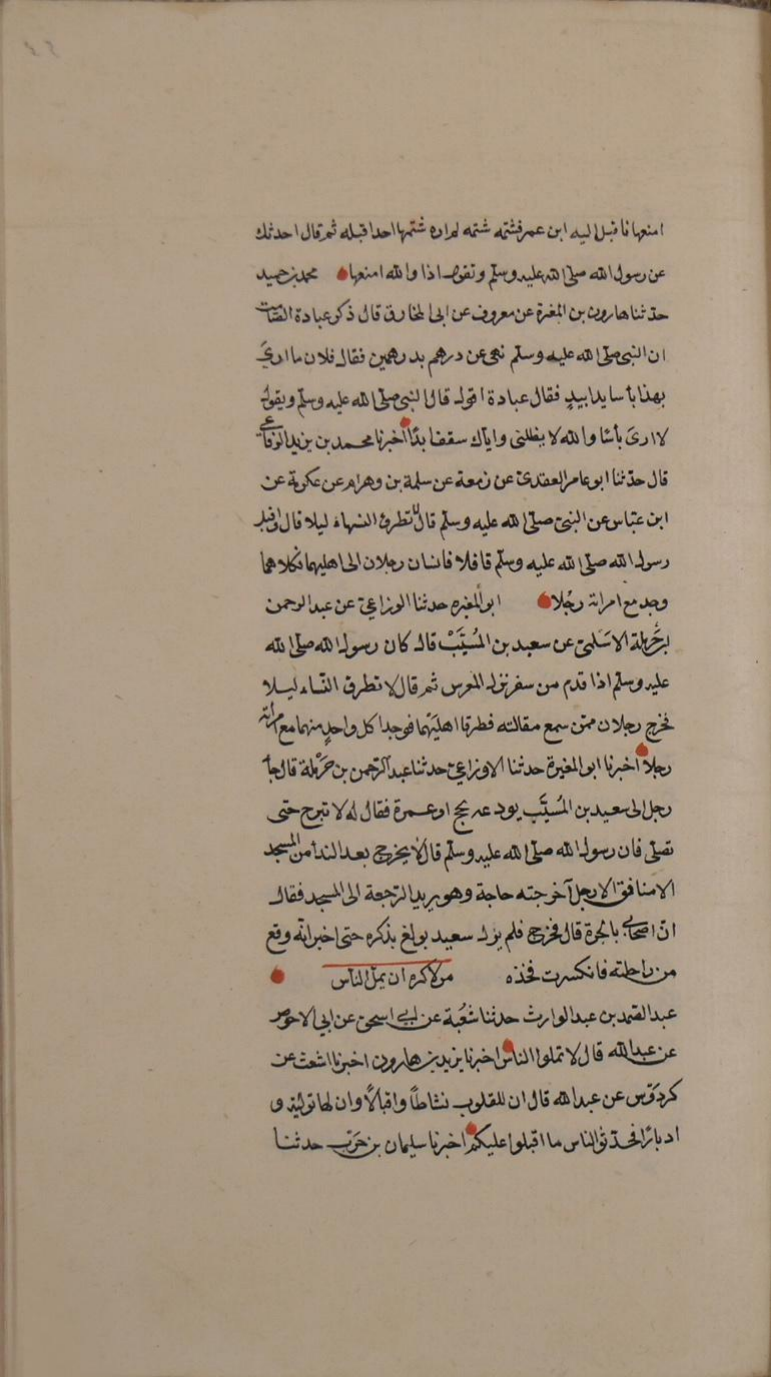 امنعها فاقبل اليه ابن عمر فشتمه شتمه لم اره شتمها احدا قبله ثم قال احدثك
عن رسول الله صلى الله عليه وسلم وتقول اذا والله امنعها محمد بن حميد
حدثنا هارون بن المغيرة عن معروف عن ابى المخارق قال ذكر عبادة الصامت
ان النبى صلى الله عليه وسلم نهى عن درهم بدرهمين فقال فلان ما ارى
بهذا بأسا يدا بيد فقال عبادة اقول قال النبى صلى الله عليه وسلم ويقول
لا ارى بأسا والله لا يظلنى واياك سقف ابدًا اخبرنا محمد بن يزيد الرفاعى
قال حدثنا ابو عامر العقدى عن زمعة عن سلمة بن وهرام عن عكرمة عن
ابن عباس عن النبى صلى الله عليه وسلم قال لا تطرقوا النساء ليلا قال واقبل
رسول الله صلى الله عليه وسلم قافلا فانسان رجلان الى اهليهما فكلاهما
وجد مع امراته رجلا ابو المغيره حدثنا الوزاعى عن عبد الرحمن
ابن حرملة الاسلمى عن سعيد بن المُسَيَّبْ قال كان رسول الله صلى الله
عليه وسلم اذا قدم من سفر نزل المعرس ثم قال لا تطرق النساء ليلا
فخرج رجلان ممن سمع مقالته فطرقا اهليهما فوجدا كل واحد منهما مع امرأته
رجلا اخبرنا ابو المغيرة حدثنا الاوزاعى حدثنا عبد الرحمن بن حرملة قال جاء
رجل الى سعيد بن المُسَيَّب يودعه بحج او عمرة فقال له لا تبرح حتى
تصلى فان رسول الله صلى الله عليه وسلم قال لا يخرج بعد الندا من المسجد
الا منافق الا رجل آخرجته حاجة وهو يريد الرجعة الى المسجد فقال
ان اصحابى بالحرة قال فخرج فلم يزل سعيد يولع بذكره حتى اخبر انه وقع
من راحلته فانكسرت فخذه من كره ان يمل الناس
عبد الصمد بن عبد الوارث حدثنا شعبة عن ابى اسحق عن ابى الاحوص
عن عبد الله قال لا تملوا الناس اخبرنا يزيد بن هارون اخبرنا اشعث عن
كردوس عن عبد الله قال ان للقلوب نشاطاً واقبالاً وان لها تولية و
ادبارًا فحدثوا الناس ما اقبلوا عليكم اخبرنا سليمان بن حرب حدثنا